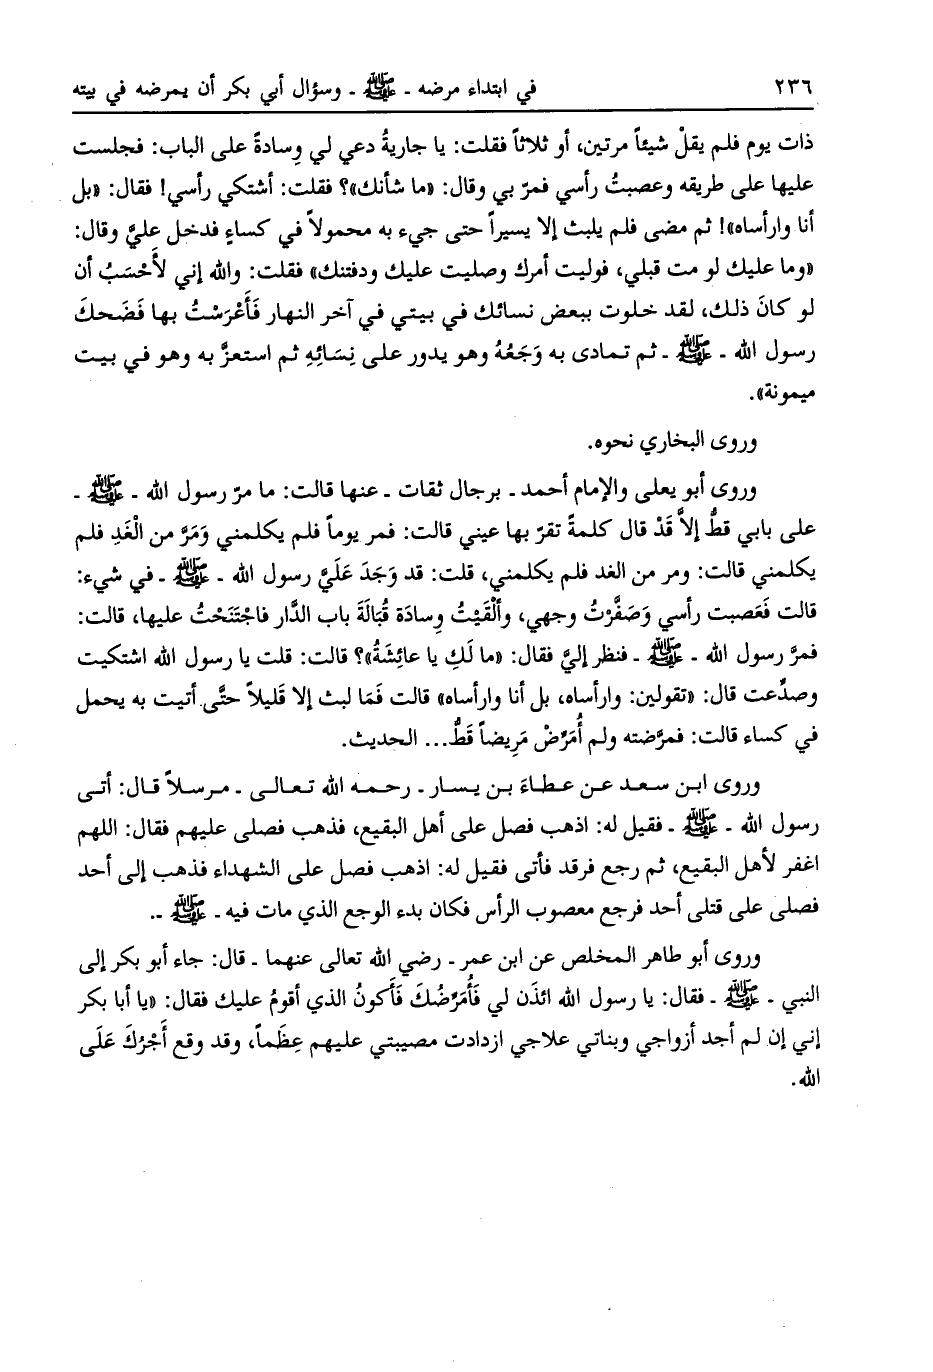 ٢٣٦ في ابتداء مرضه - ﷺ - وسؤال أبي بكر أن يمرضه في بيته
ذات يوم فلم يقلْ شيئاً مرتين، أو ثلاثاً فقلت: يا جاريةُ دعي لي وِسادةً على الباب: فجلست
عليها على طريقه وعصبتُ رأسي فمرّ بي وقال: «ما شأنك»؟ فقلت: أشتكي رأسي! فقال: «بل
أنا وارأساه»! ثم مضى فلم يلبث إلا يسيراً حتى جيء به محمولاً في كساءٍ فدخل عليَّ وقال:
«وما عليك لو مت قبلي، فوليت أمرك وصليت عليك ودفتنك» فقلت: والله إني لأَحْسَبُ أن
لو كانَ ذلك، لقد خلوت ببعض نسائك في بيتي في آخر النهار فَأَعْرَسْتُ بها فَضَحكَ
رسول الله - ﷺ - ثم تمادى به وَجَعُهُ وهو يدور على نِسَائِهِ ثم استعزَّ به وهو في بيت
ميمونة».
وروى البخاري نحوه.
وروى أبو يعلى والإمام أحمد - برجال ثقات - عنها قالت: ما مرّ رسول الله - ﷺ -
على بابي قطُّ إلاَّ قَدْ قال كلمةً تقرّ بها عيني قالت: فمر يوماً فلم يكلمني وَمَرَّ من الْغَدِ فلم
يكلمني قالت: ومر من الغد فلم يكلمني، قلت: قد وَجَدَ عَلَيَّ رسول الله - ﷺ - في شيء:
قالت فَعَصبت رأسي وَصَفَّرْتُ وجهي، وألْقَيْتُ وِسادَة قُبَالَةَ باب الدَّار فاجْتَنَحْتُ عليها، قالت:
فمرَّ رسول الله - ﷺ - فنظر إليَّ فقال: «ما لَكِ يا عائِشَةُ»؟ قالت: قلت يا رسول الله اشتكيت
وصدِّعت قال: «تقولين: وارأساه، بل أنا وارأساه» قالت فَمَا لبث إلا قَليلاً حتَّى أتيت به يحمل
في كساء قالت: فمرّضته ولم أُمَرِّضْ مَرِيضاً قَطُّ... الحديث.
وروى ابن سعد عن عطاءَ بن يسار - رحمه الله تعالى - مرسلاً قال: أتى
رسول الله - ﷺ - فقيل له: اذهب فصل على أهل البقيع، فذهب فصلى عليهم فقال: اللهم
اغفر لأهل البقيع، ثم رجع فرقد فأتى فقيل له: اذهب فصل على الشهداء فذهب إلى أحد
فصلى على قتلى أحد فرجع معصوب الرأس فكان بدء الوجع الذي مات فيه - ﷺ -.
وروى أبو طاهر المخلص عن ابن عمر - رضي الله تعالى عنهما - قال: جاء أبو بكر إلى
النبي - ﷺ - فقال: يا رسول الله ائذَن لي فَأُمَرِّضُكَ فَأَكونُ الذي أقومُ عليك فقال: «يا أبا بكر
إني إن لم أجد أزواجي وبناتي علاجي ازدادت مصيبتي عليهم عِظَماً، وقد وقع أَجْرُكَ عَلَى
الله.